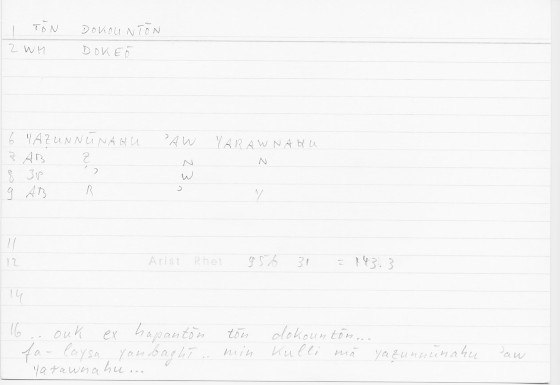 1 TŌN DOKOUNTŌN
2 WM DOKEŌ
6 YAẒUNNŪNAHU ʾAW YARAWNAHU
7 AB Ẓ N N
8 ʾ W
9 AB R ʾ Y
11
12 Arist Rhet 956 31 = 143.3
14
16 .. ouk ex hapantōn tōn dokountōn...
fa-laysa yanbaghī.. min kulli mā yaẓunnūnahu ʾaw
yarawnahu...